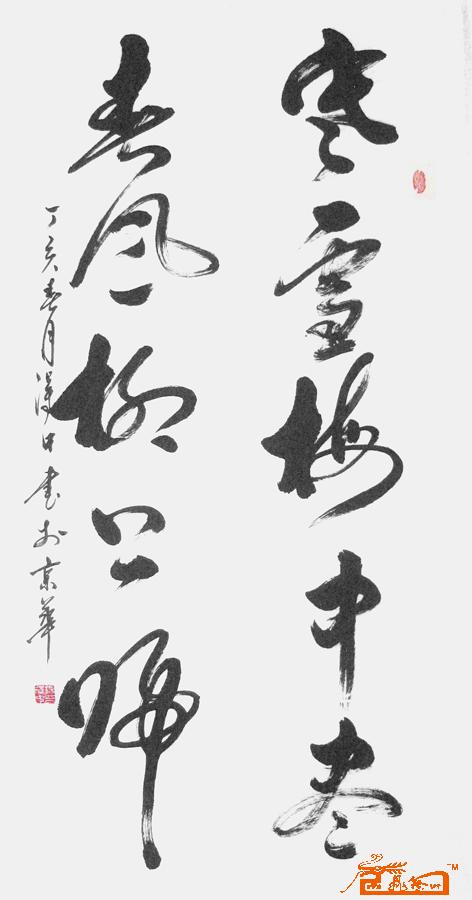 寒雪梅中尽
春风柳上归
丁亥春月汉中书于京华